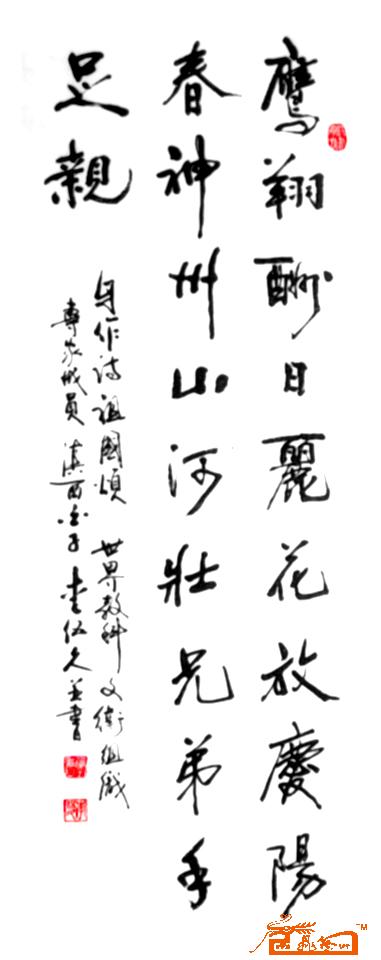 鷹翔酬日麗花放慶陽
春神州山河壯兄弟手
足親
自作詩祖國頌 世界教科文衛組織
專家成員 滇西
書